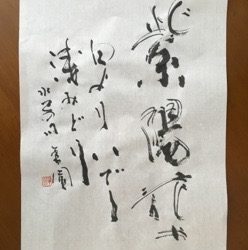 紫陽花や
白よりいでし
浅みどり
水巴句